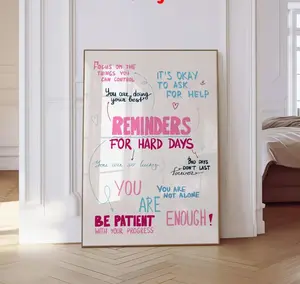 FOCUS ON THE
THINGS YOU
CAN CONTROL
IT'S OKAY
TO ASK
FOR HELP
You are doing
your best
REMINDERS
FOR HARD DAYS
You are so lucky
BAD DAYS
DON'T LAST
forever
YOU
ARE
ENOUGH!
YOU ARE
NOT ALONE
BE PATIENT
WITH YOUR PROGRESS